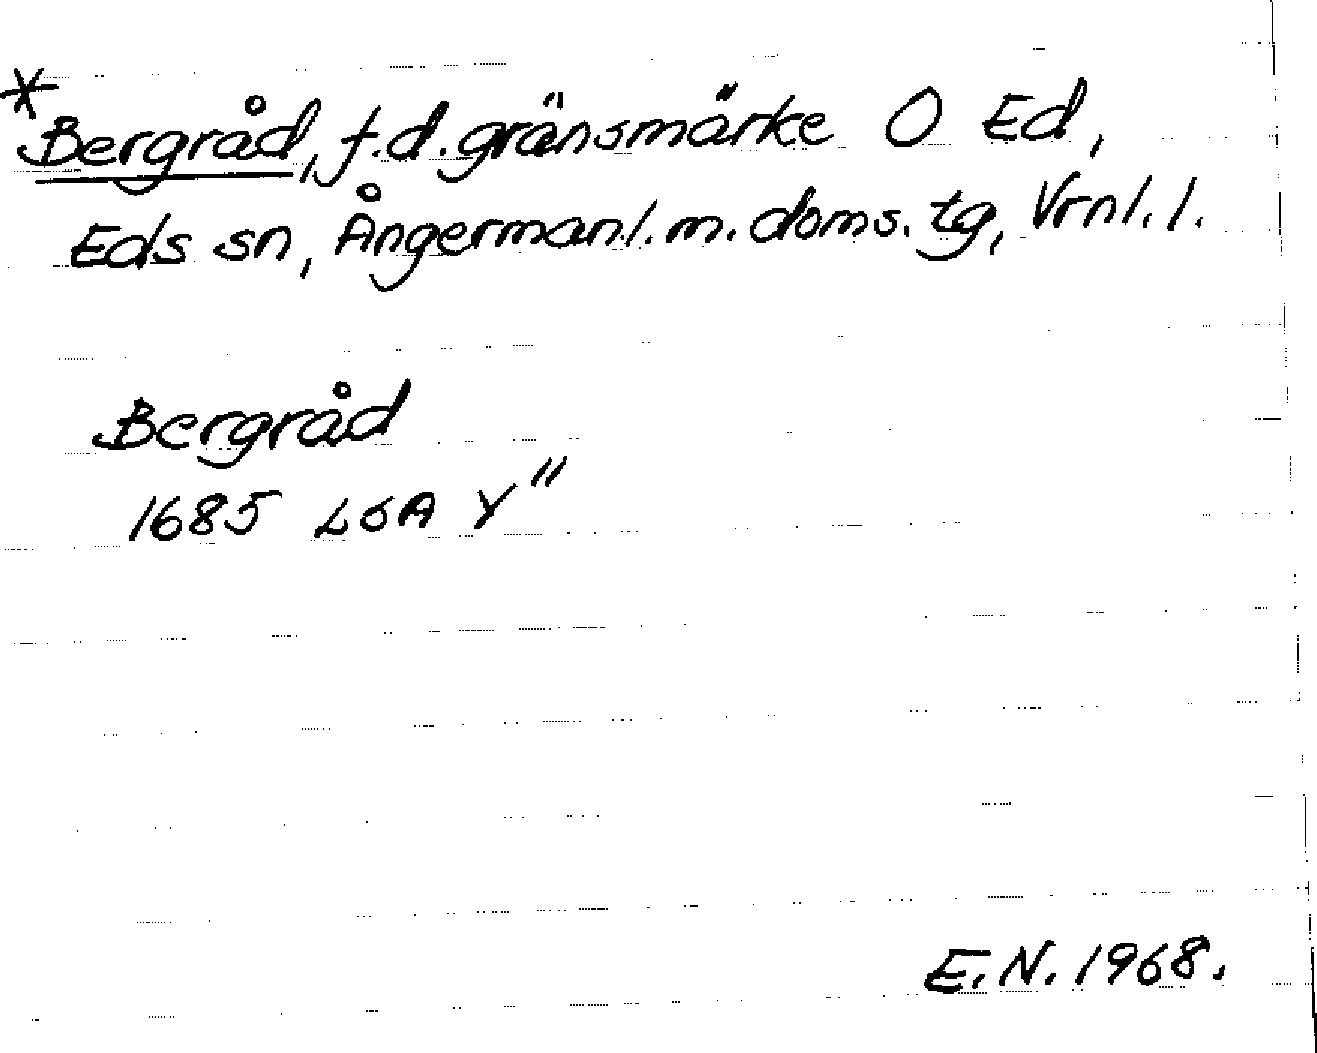 *Bergråd, f.d. gränsmärke O Ed,
Eds sn, Ångermanl. m. doms. tg, Vrnl. l.
Bergråd
1685 LSA Y"
E.N. 1968.